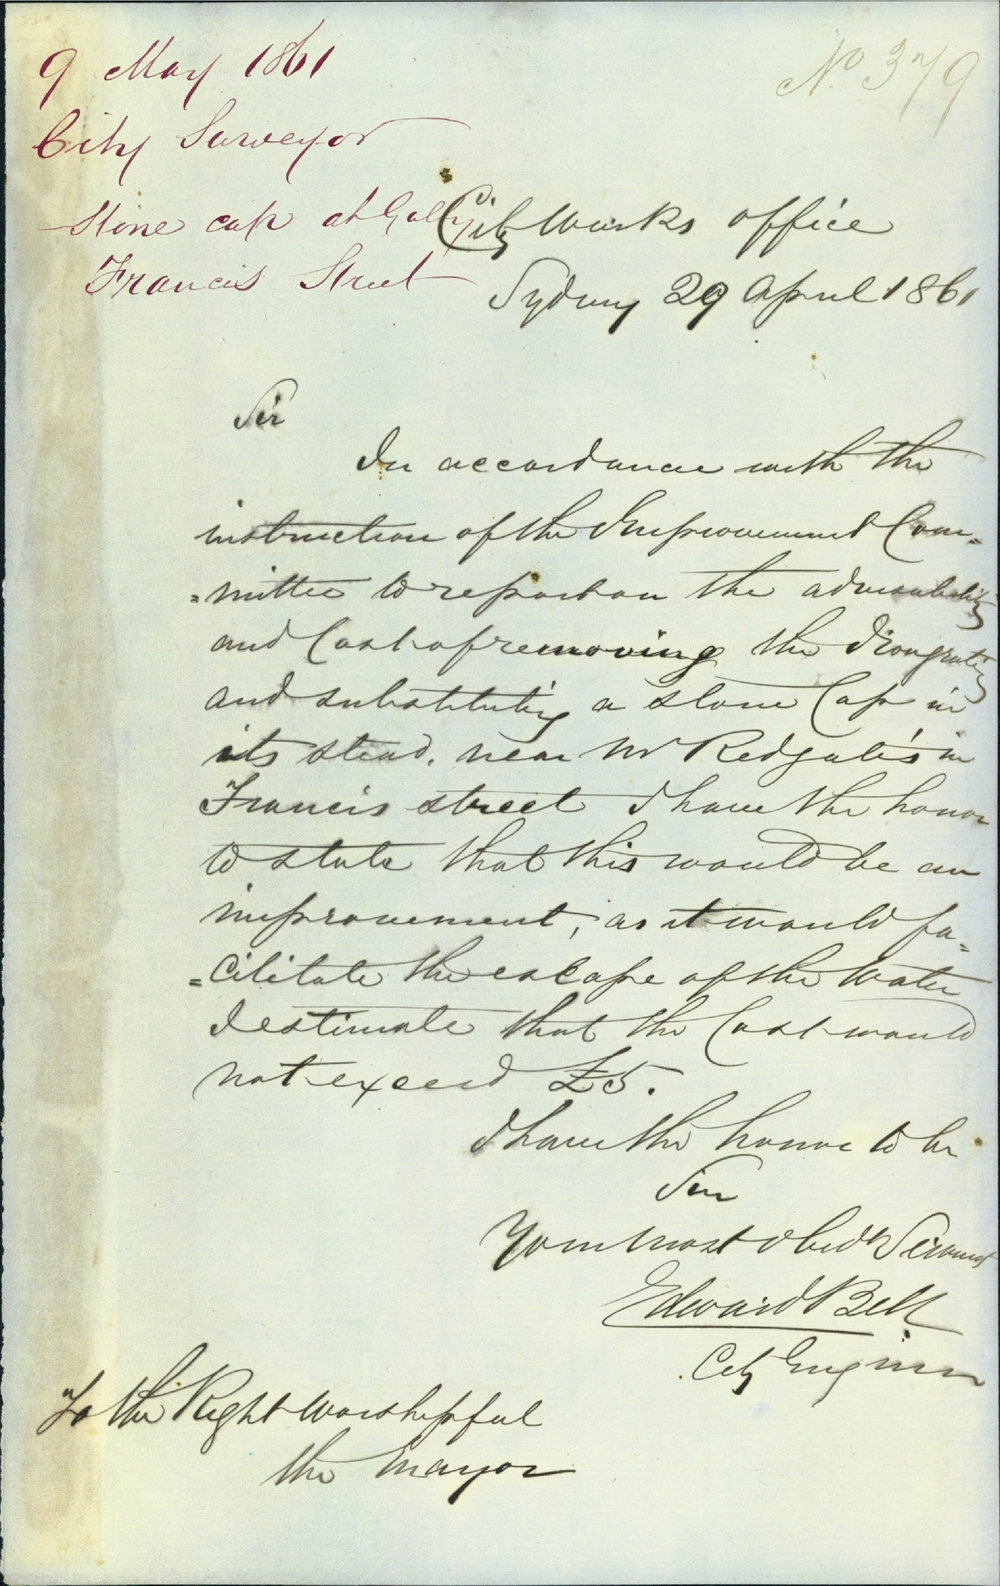 9 May 1861
City Surveyor
Stone cap at Gully
Francis Street
No. 379
City Works office
Sydney 29 April 1861
Sir
In accordance with the
instruction of the Improvement Com-
-mittee to report on the advisability
and Cost of removing the Irongrating
and substituting a stone Cap in
its stead, near Mr Redgate's in
Francis street I have the honor
to state that this would be an
improvement, as it would fa-
-cilitate the escape of the Water
I estimate that the Cost would
not exceed £5.
I have the honor to be
Sir
Your most obedt Servant
Edward Bell
City Engineer
To the Right Worshipful
the Mayor